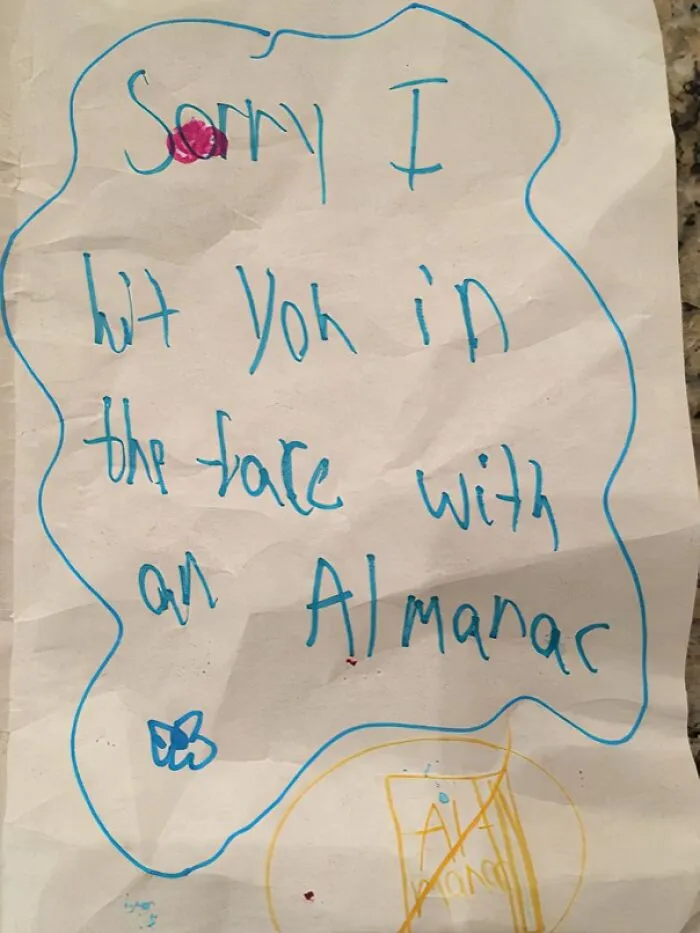 Sorry I
hit you in
the face with
an Almanac
Al-
manac